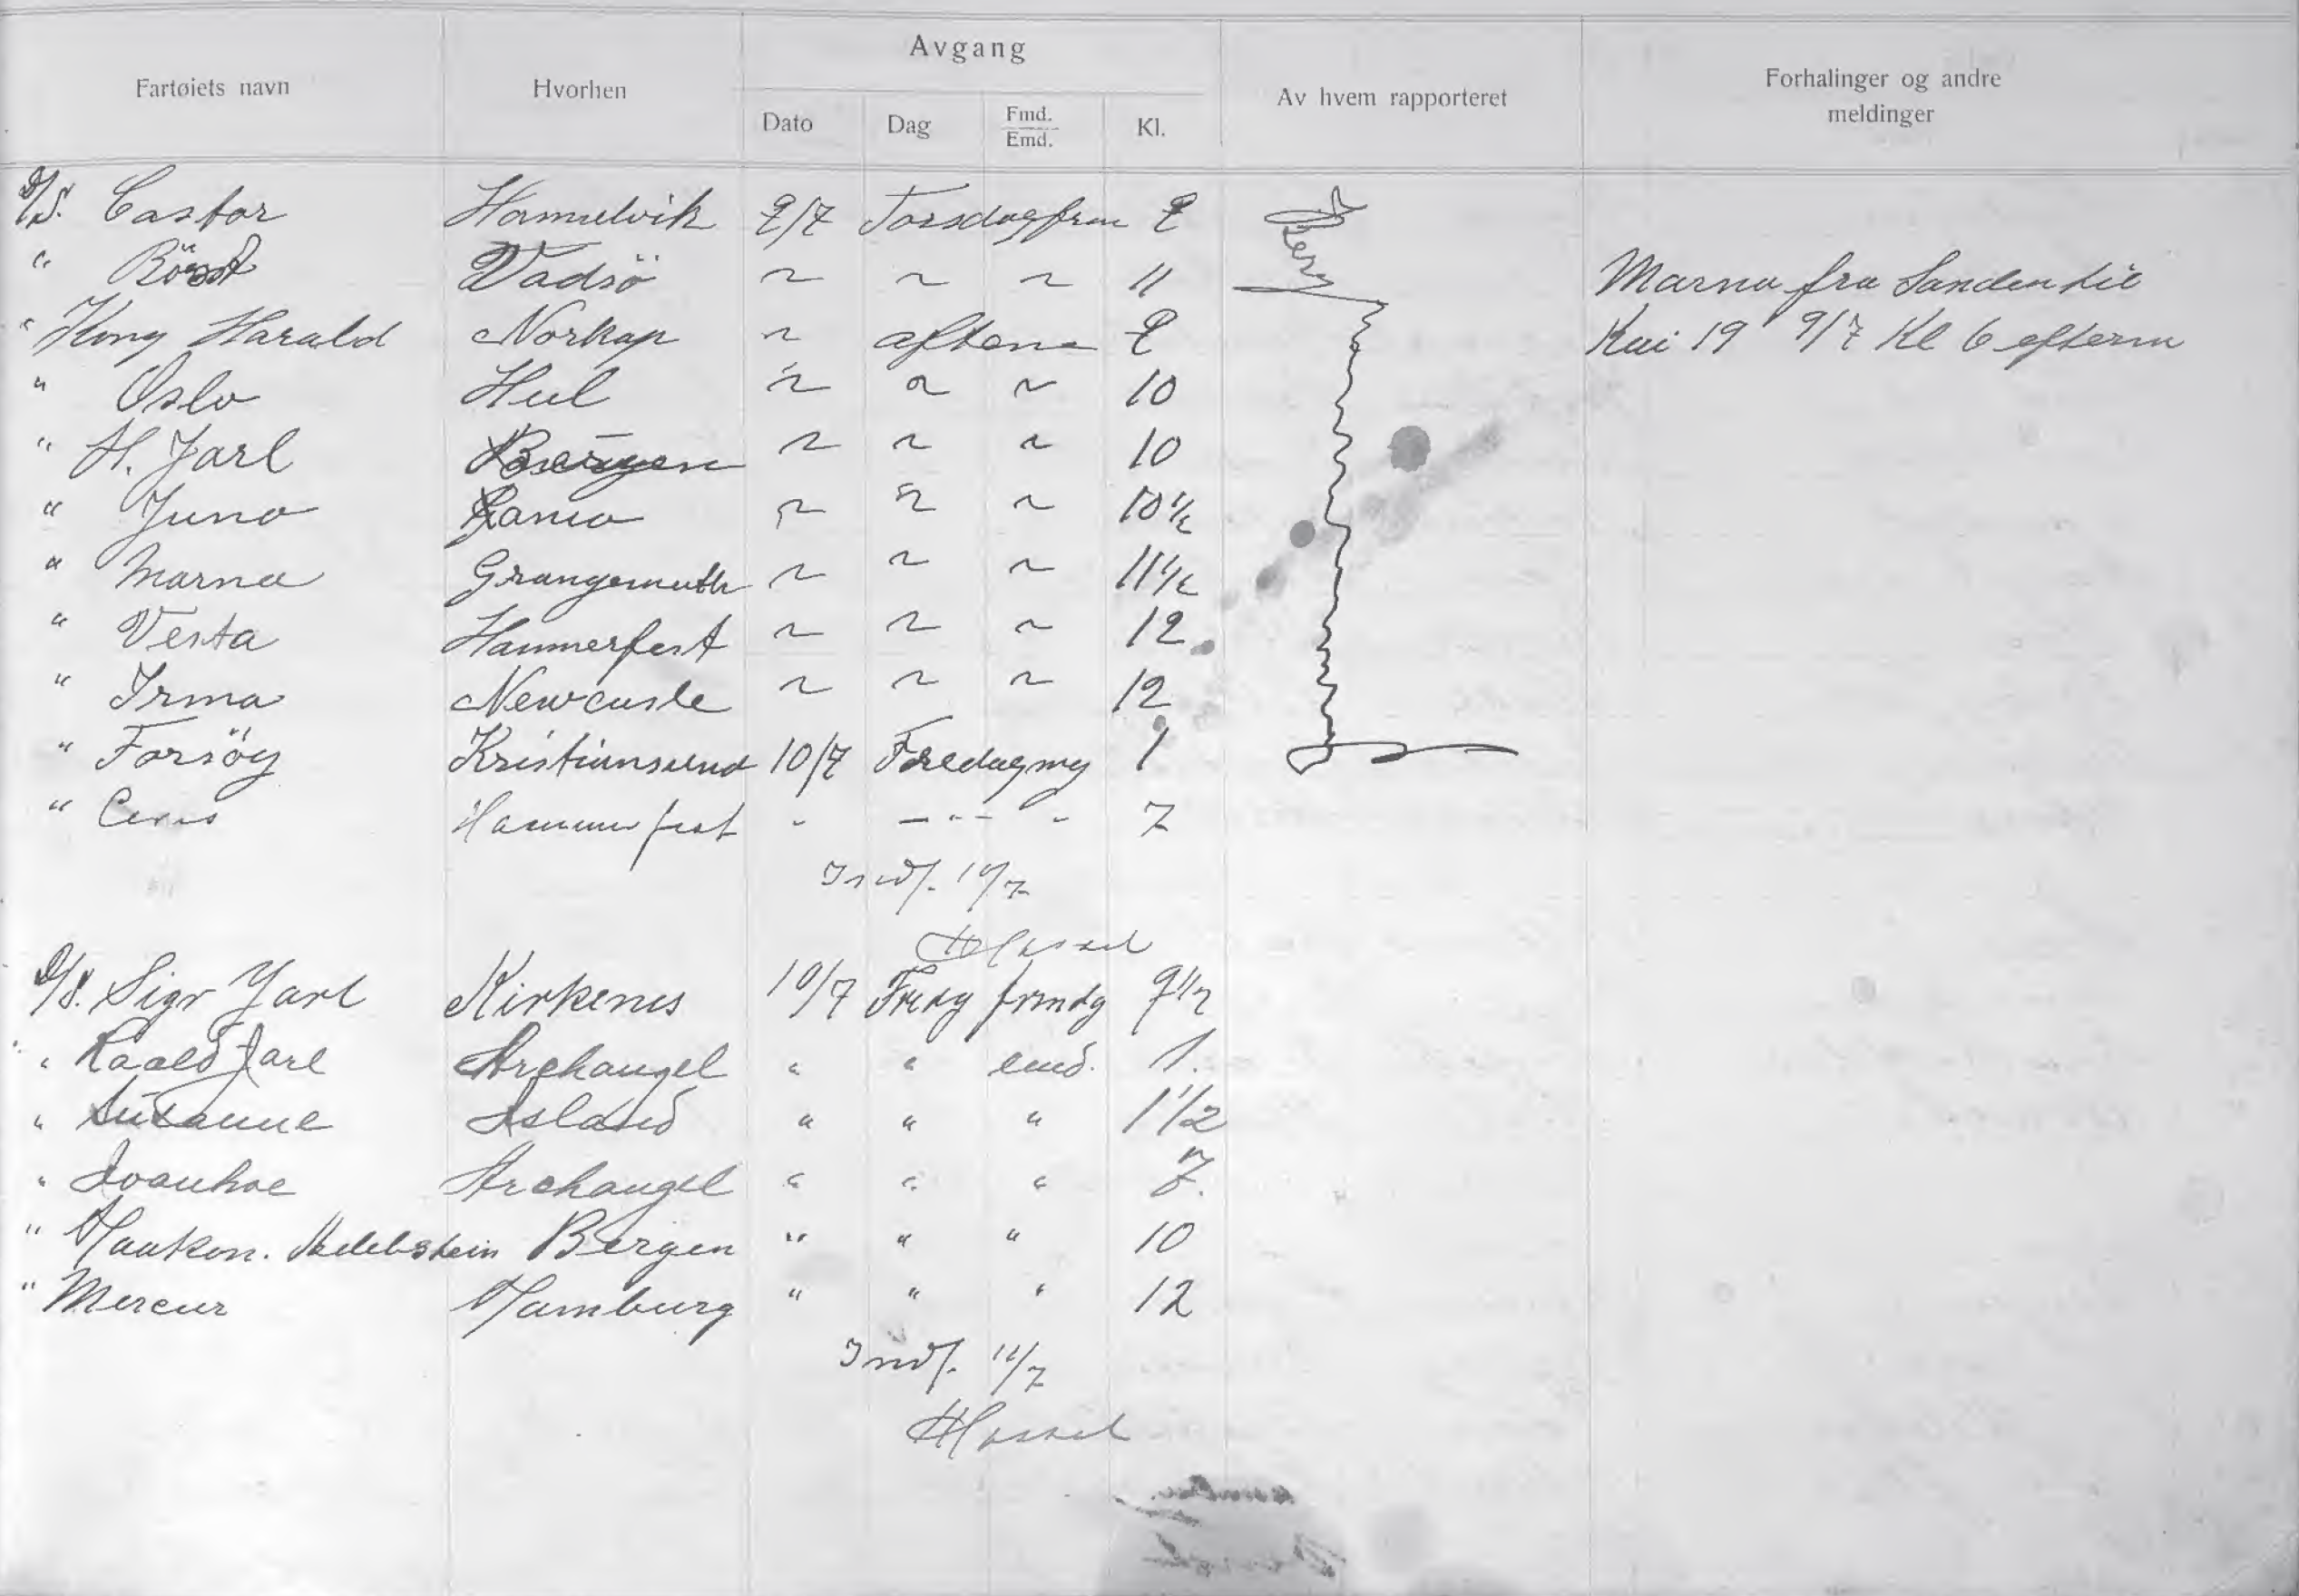 Avgang
Fartøiets navn Hvorhen Dato Dag Fmd. Emd. Kl. Av hvem rapporteret Forhalinger og andre meldinger
D/S. Castor Hamulvik 9/7 Torsdag frm 9 Berg
" Röst Vadsö ~ ~ ~ 11 Marna fra Sanden til
" Kong Harald Norkap ~ aftenen 9 Kai 19 9/7 Kl 6 efterm
" Oslo Hul ~ ~ ~ 10
" H. Jarl Bergen ~ ~ ~ 10
" Juno ~ ~ ~ 10 1/2
" Marna Grangemuth ~ ~ ~ 11 1/2
" Vesta Hammerfest ~ ~ ~ 12
" Irma Newcasle ~ ~ ~ 12
" Forsög Kristiansund 10/7 Fredag mg 1
" Ceres Hammerfest " - " - " 7
Indf. 10/7
D/S. Sigr Jarl Kirkenes 10/7 Fredg frmdg 9 1/2
" Raald Jarl Archangel " " emd. 1.
" Susanne Island " " " 1 1/2
" Ivanhoe Archangel " " " 7.
" Haakon. Adelstein Bergen " " " 10
" Mercur Hamburg " " " 12
Indf. 11/7